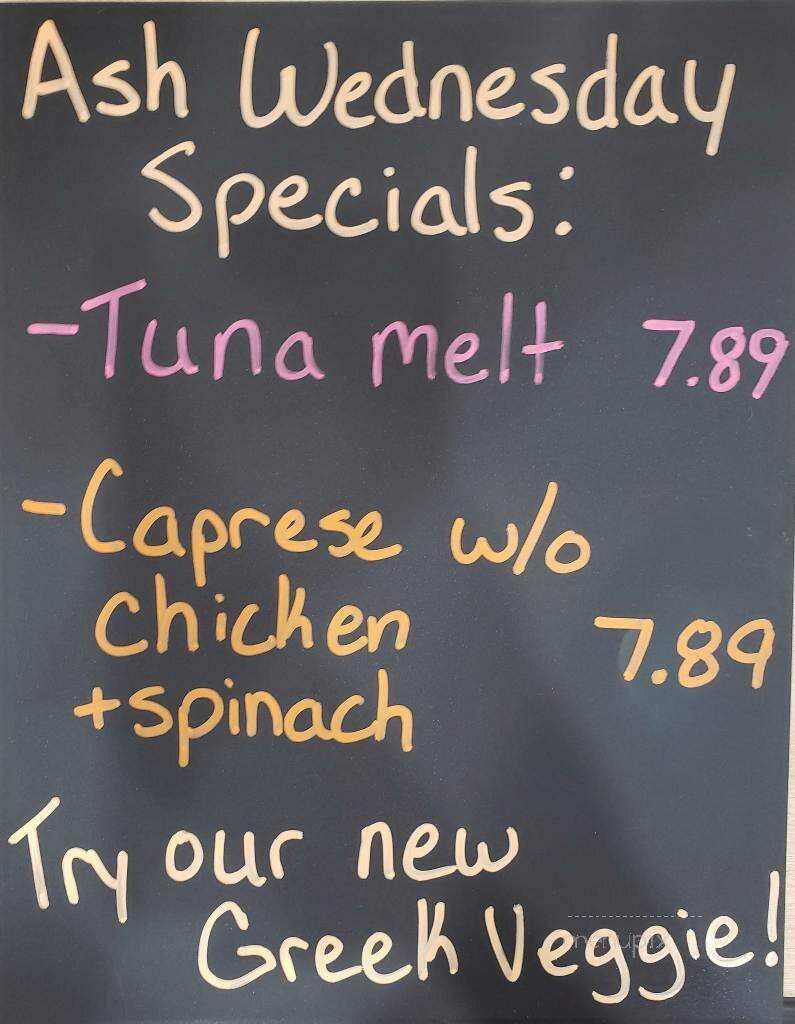 Ash Wednesday
Specials:
-Tuna melt 7.89
-Caprese w/o
chicken 7.89
+spinach
Try our new
Greek Veggie!
menupix